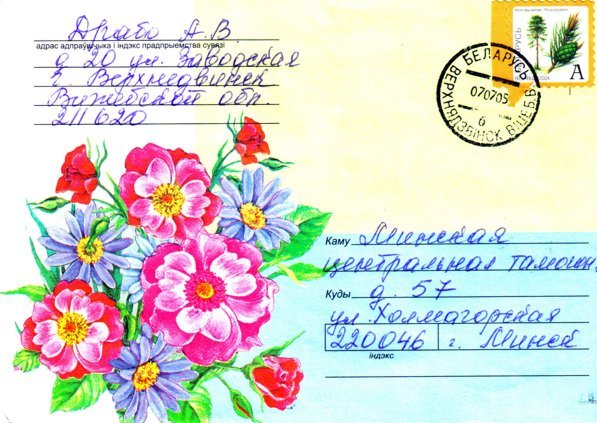 Драбо А.В.
адрас адпраўшчыка і індэкс прадпрыемства сувязі
д 20 ул. Заводская
г. Верхнедвинск
Витебской обл.
211620
БЕЛАРУСЬ
ВЕРХНЯДЗВІНСК ВІЦЕБ.
070705
б
А
Каму Минская
центральная таможн.
Куды д. 57
ул. Холмагорская
220046 г. Минск
індэкс